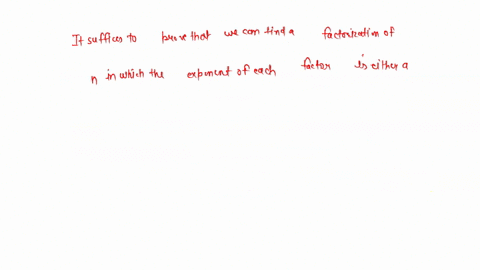 It suffices to prove that we can find a factorization of
n in which the exponent of each factor is either a